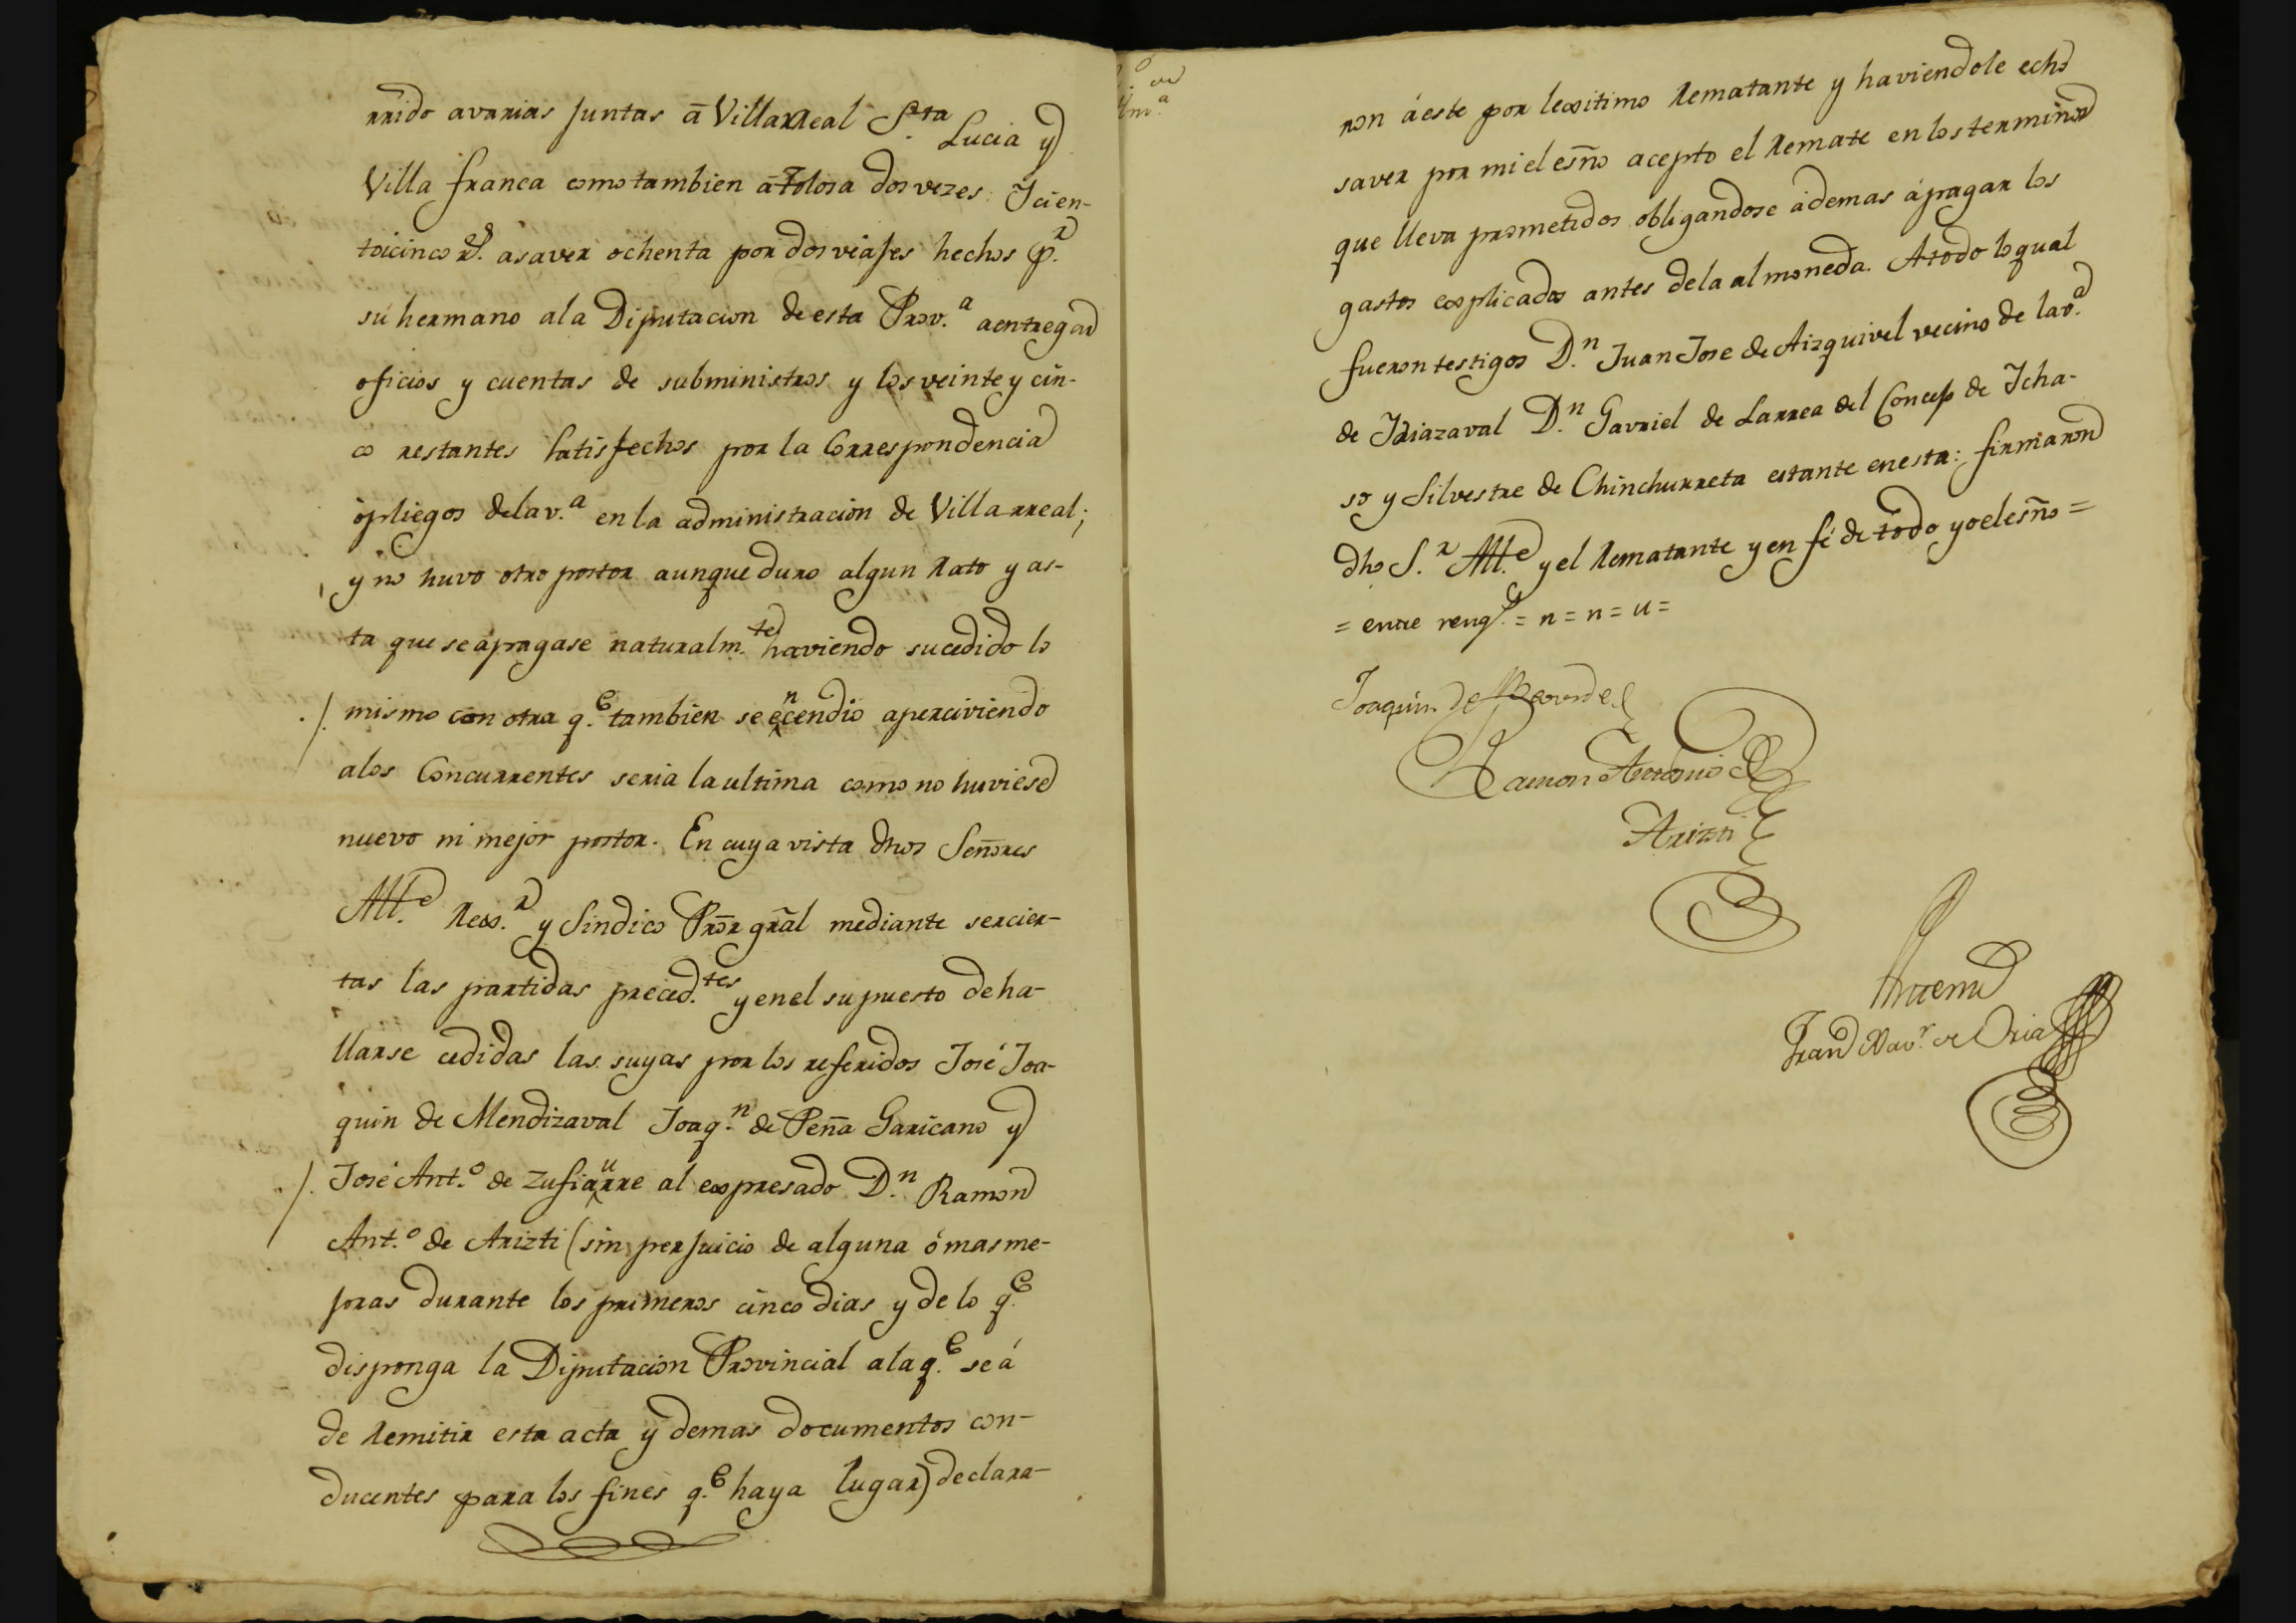 rrido avarias Juntas á Villarreal S.ta Lucia y
Villa franca como tambien á Tolosa dos vezes: Icien-
toicinco r.s asaver ochenta por dos viajes hechos p.r
sú hermano ala Diputacion de esta Prov.a aentregar
oficios y cuentas de subministros y los veinte y cin-
co restantes Satisfechos por la Correspondencia
ópliegos dela v.a en la administracion de Villarreal;
y no huvo otro postor aunque duro algun Rato y as-
ta que se apagase naturalm.te haviendo sucedido lo
mismo con otra q.e tambien se encendio aperciviendo
alos Concurrentes seria la ultima como no huviese
nuevo ni mejor postor. En cuya vista dhos Señores
All.e Rex.r y Sindico Pror gral mediante ser cier-
tas las partidas preced.tes y en el supuesto de ha-
llarse cedidas las suyas por los referidos José Joa-
quin de Mendizaval Joaq.n de Peña Garicano y
José Ant.o de Zufiaurre al expresado D.n Ramon
Ant.o de Arizti (sin perjuicio de alguna ó mas me-
joras durante los primeros cinco dias y de lo q.e
disponga la Diputacion Provincial ala q.e se á
de Remitir esta acta y demas documentos con-
ducentes para los fines q.e haya lugar) declara-
ron á este por lexitimo Rematante y haviendole echo
saver por mi el esño acepto el Remate en los terminos
que lleva prometidos obligandose ademas ápagar los
gastos explicados antes dela almoneda. Atodo lo qual
fueron testigos D.n Juan Jose de Aizquivel vecino de la v.a
de Idiazaval D.n Gavriel de Larrea del Concejo de Icha-
so y Silvestre de Chinchurreta estante en esta: firmaron
dho S.r All.e y el Rematante y en fé de todo yo el esño =
= entre reng.s = n = n = u =
Joaquin de
Ramon Antonio de
Arizti
Antemi
Fran.co Xav.r de Oria